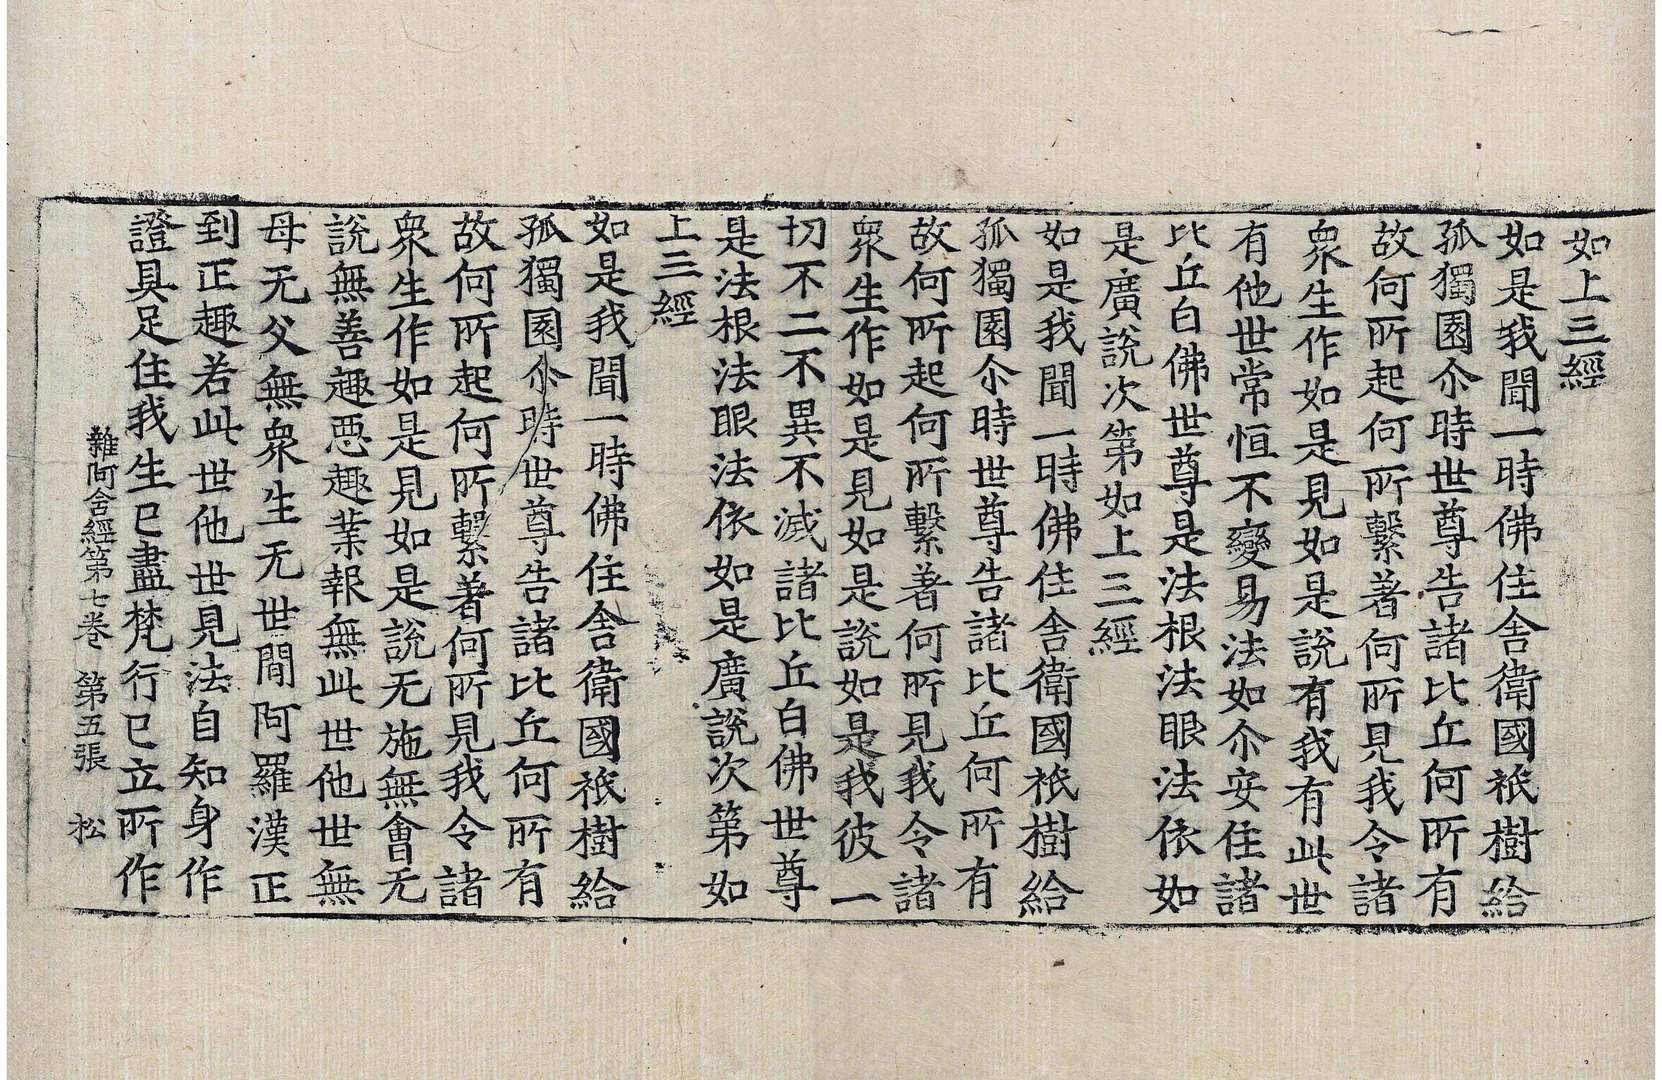 如上三經
如是我聞一時佛住舍衛國祇樹給
孤獨園尒時世尊告諸比丘何所有
故何所起何所繫著何所見我令諸
衆生作如是見如是說有我有此世
有他世常恒不變易法如尒安住諸
比丘白佛世尊是法根法眼法依如
是廣說次第如上三經
如是我聞一時佛住舍衛國祇樹給
孤獨園尒時世尊告諸比丘何所有
故何所起何所繫著何所見我令諸
衆生作如是見如是說如是我彼一
切不二不異不滅諸比丘白佛世尊
是法根法眼法依如是廣說次第如
上三經
如是我聞一時佛住舍衛國祇樹給
孤獨園尒時世尊告諸比丘何所有
故何所起何所繫著何所見我令諸
衆生作如是見如是說无施無會无
說無善趣惡趣業報無此世他世無
母无父無衆生无世間阿羅漢正
到正趣若此世他世見法自知身作
證具足住我生已盡梵行已立所作
雜阿含經第七卷 第五張 松